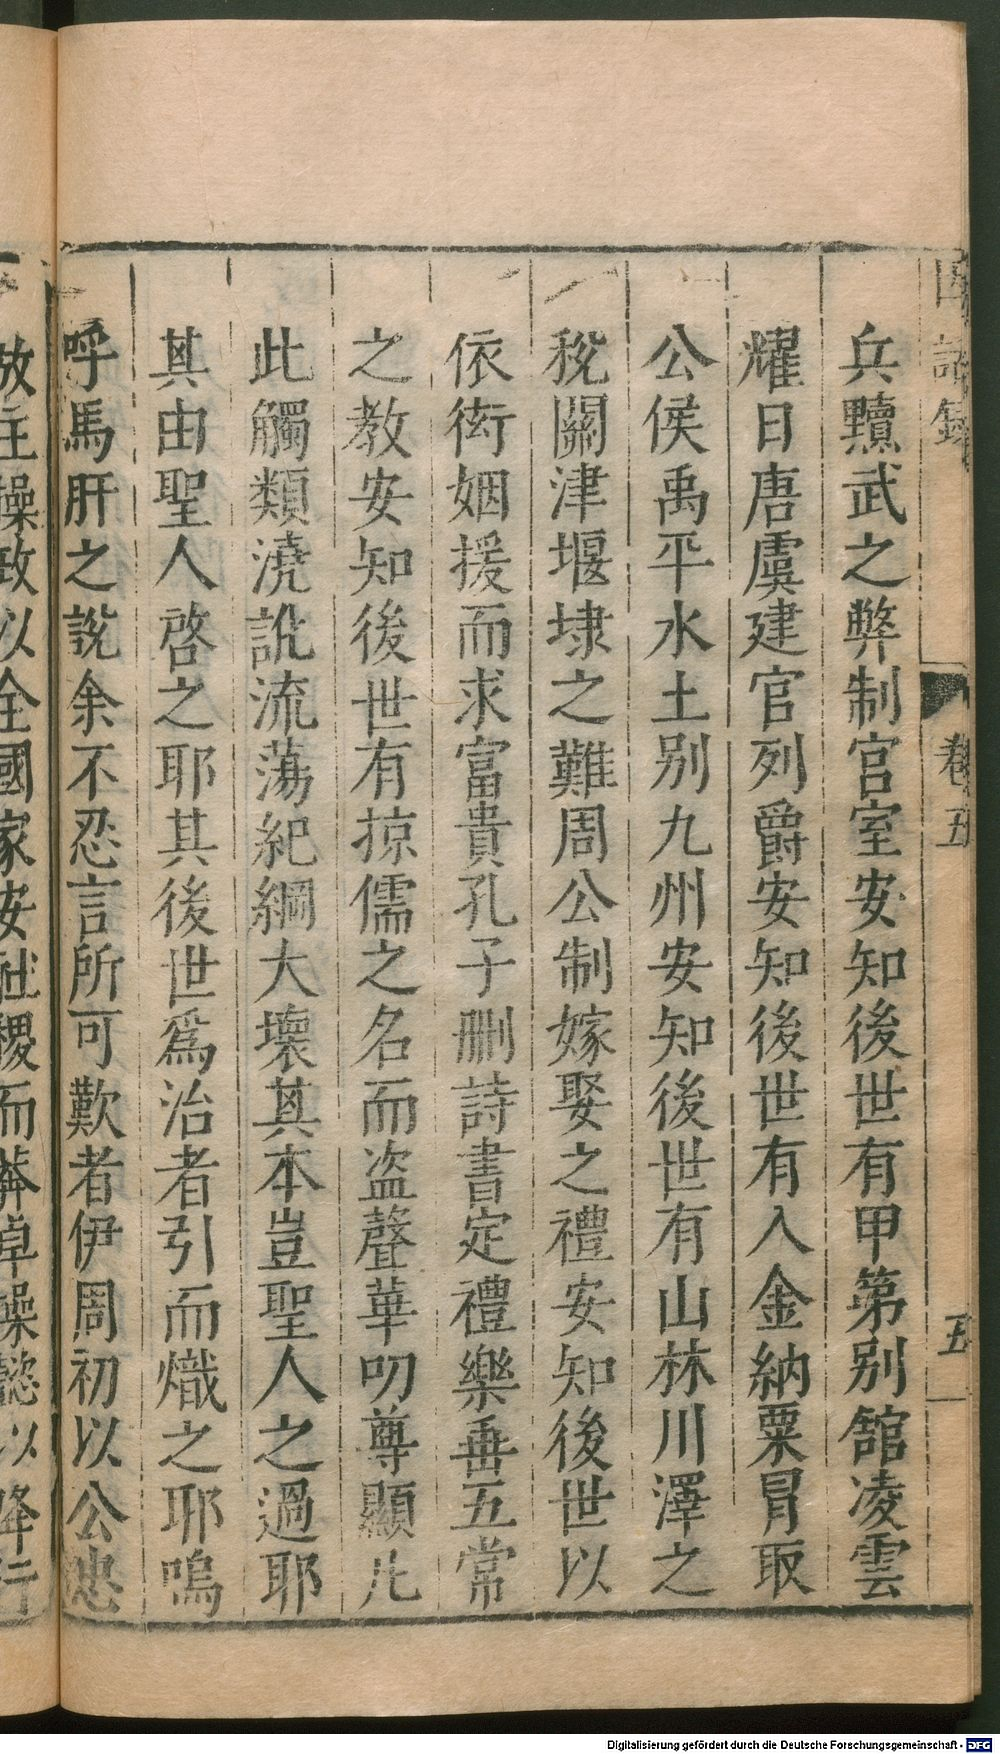 因話錄
卷五
五
兵黷武之弊制宮室安知後世有甲第別舘凌雲
耀日唐虞建官列爵安知後世有入金納粟冒取
公侯禹平水土別九州安知後世有山林川澤之
稅關津堰埭之難周公制嫁娶之禮安知後世以
依衒姻援而求富貴孔子刪詩書定禮樂垂五常
之教安知後世有掠儒之名而盗聲華叨尊顯凡
此觸類澆訛流蕩紀綱大壞其本豈聖人之過耶
其由聖人啓之耶其後世爲治者引而熾之耶嗚
呼馬肝之説余不忍言所可歎者伊周初以公忠
放主操政以全國家安社稷而莽卓操懿以降行
Digitalisierung gefördert durch die Deutsche Forschungsgemeinschaft - DFG